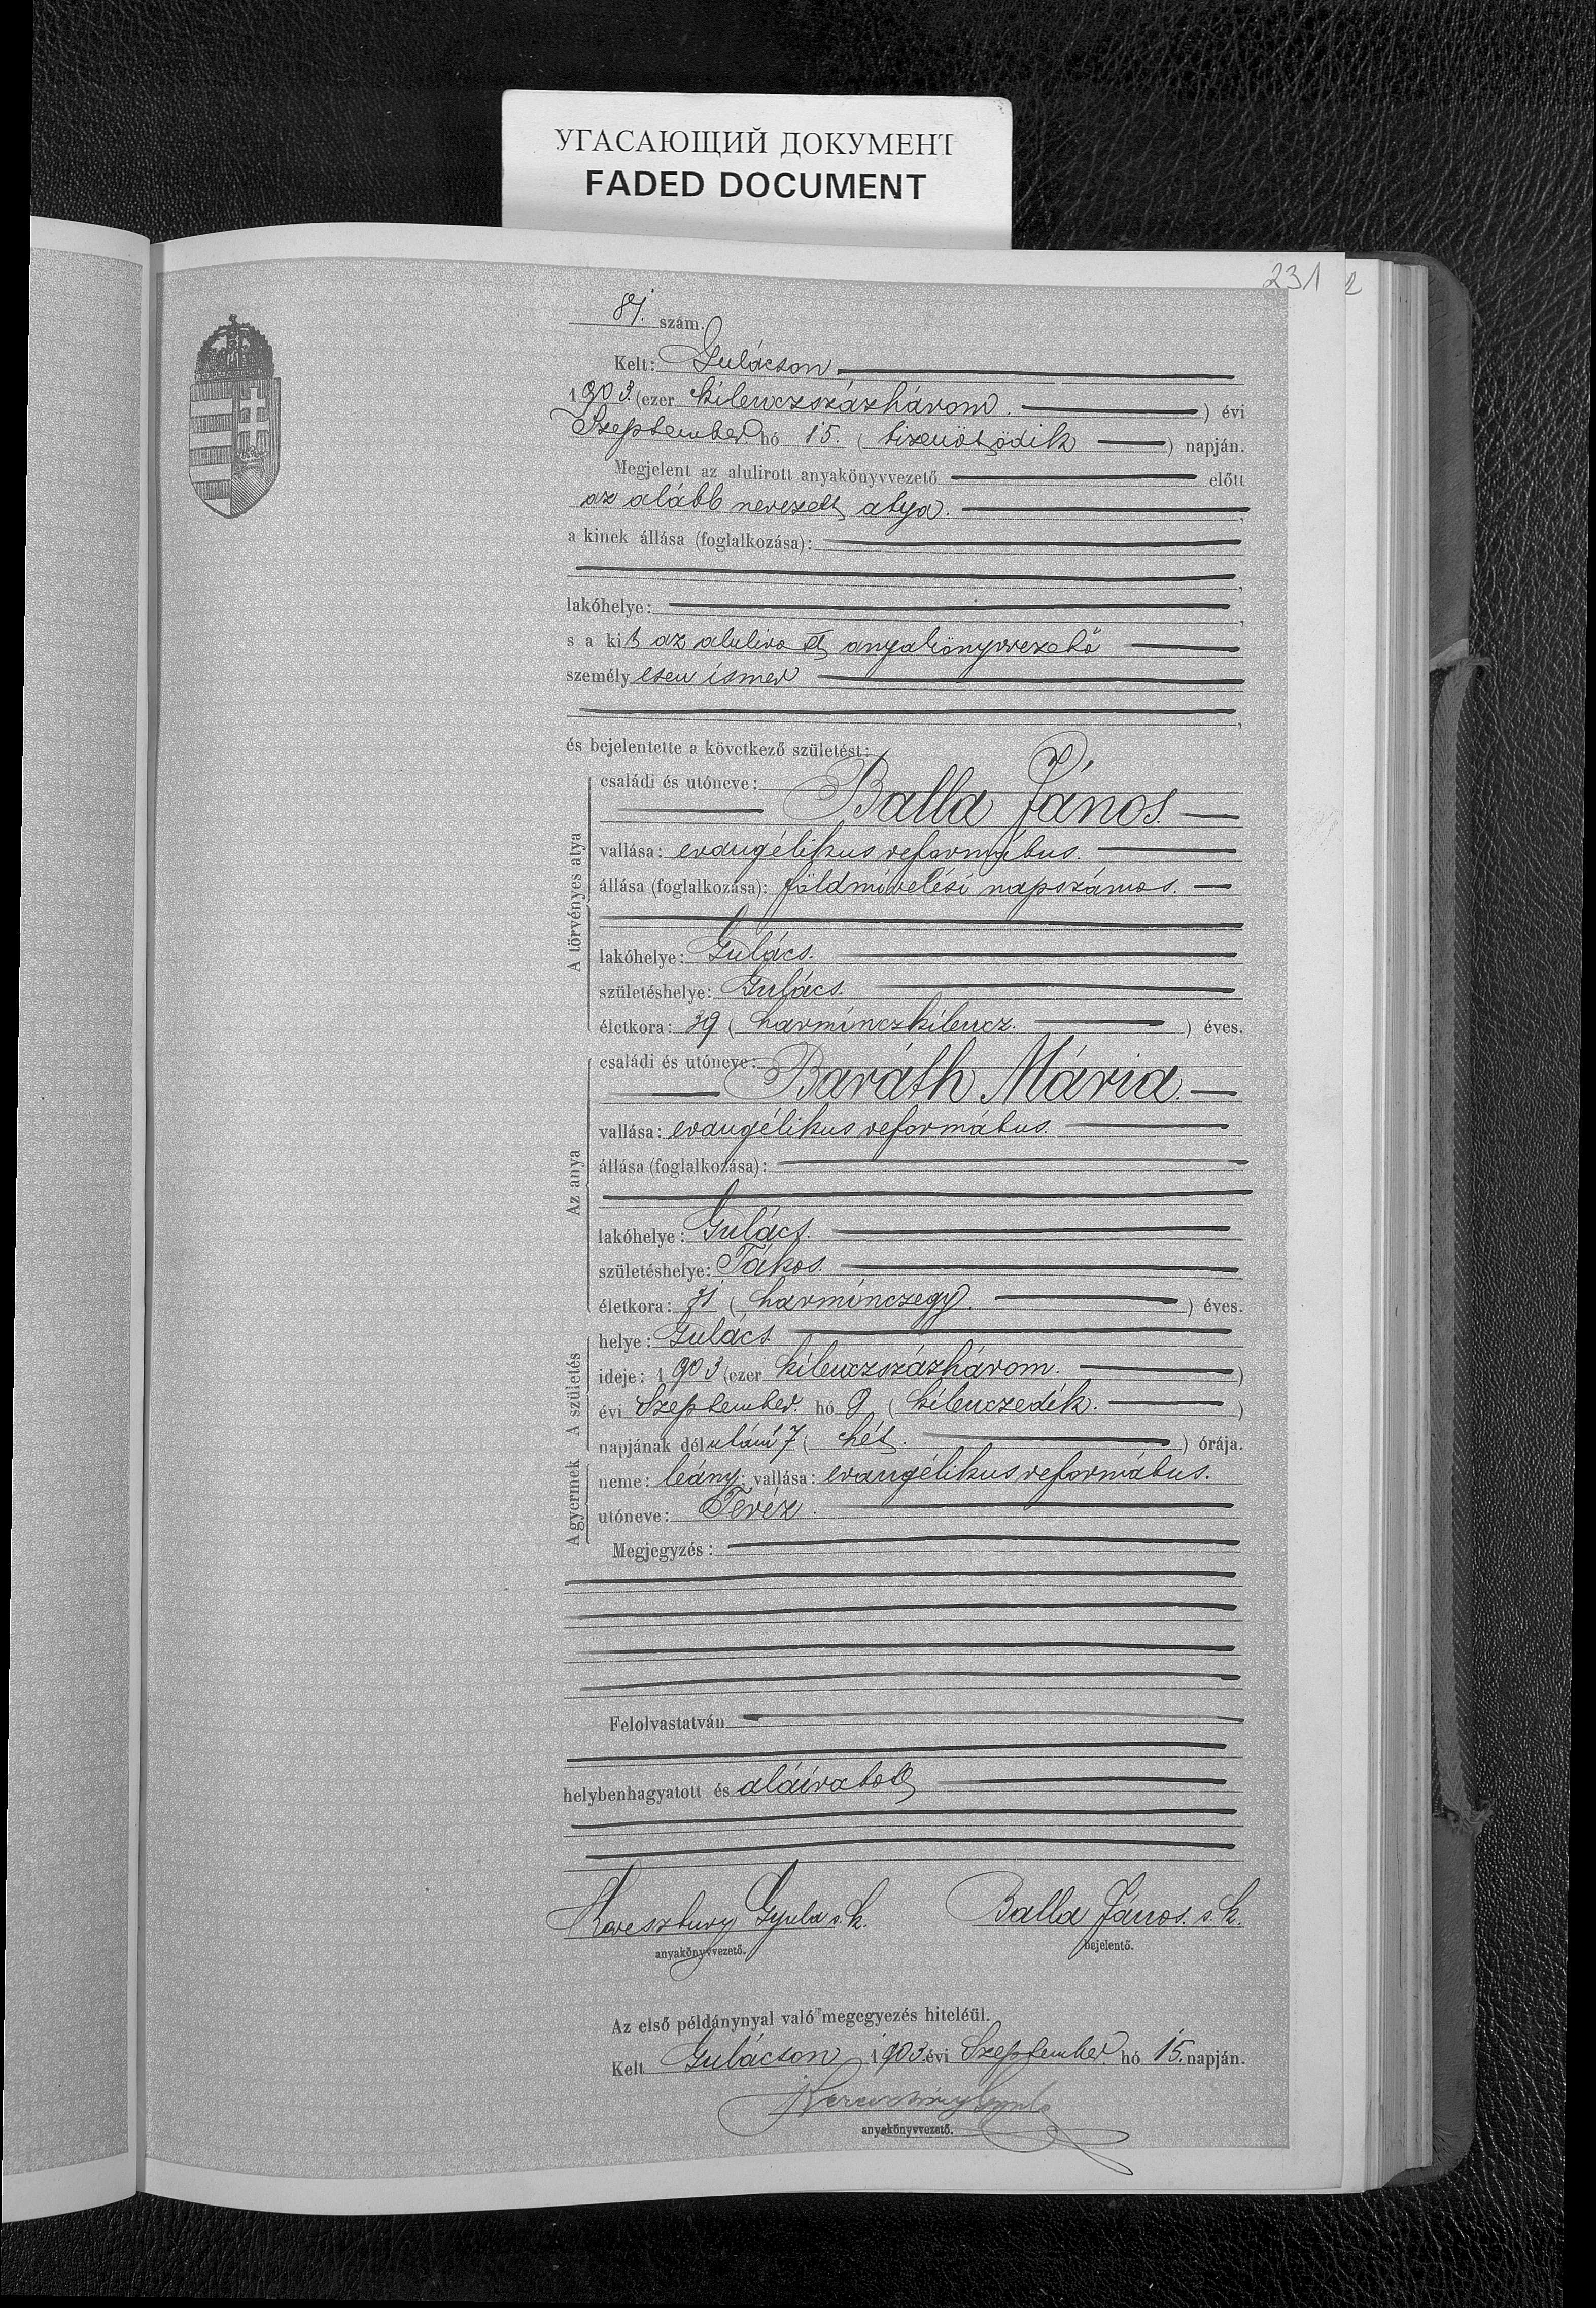 УГАСАЮЩИЙ ДОКУМЕНТ
FADED DOCUMENT
231
2
81. szám.
Kelt: Gulácson
1903. (ezer kilenczszázhárom. ) évi
Szeptember hó 15. ( tizenötödik ) napján.
Megjelent az alulirott anyakönyvvezető előtt
az alább nevezett atya.
a kinek állása (foglalkozása):
lakóhelye:
s a kit az alulirott anyakönyvvezető
személyesen ismer
és bejelentette a következő születést:
A törvényes atya
családi és utóneve:
Balla János.
vallása: evangélikus református.
állása (foglalkozása): földmívelési napszámos.
lakóhelye: Gulács.
születéshelye: Gulács.
életkora: 39 ( harminczkilencz. ) éves.
Az anya
családi és utóneve:
Baráth Mária.
vallása: evangélikus református.
állása (foglalkozása):
lakóhelye: Gulács.
születéshelye: Tákos.
életkora: 31 ( harminczegy. ) éves.
A születés
helye: Gulács.
ideje: 1903 (ezer kilenczszázhárom. )
évi Szeptember. hó 9 ( kilenczedik. )
napjának délutáni 7 ( hét. ) órája.
A gyermek
neme: leány; vallása: evangélikus református.
utóneve: Teréz.
Megjegyzés:
Felolvastatván
helybenhagyatott és aláíratott
Keresztury Gyula s. k. Balla János. s. k.
anyakönyvvezető. bejelentő.
Az első példánynyal való megegyezés hiteléül.
Kelt Gulácson 1903. évi Szeptember hó 15. napján.
Keresztury Gyula
anyakönyvvezető.